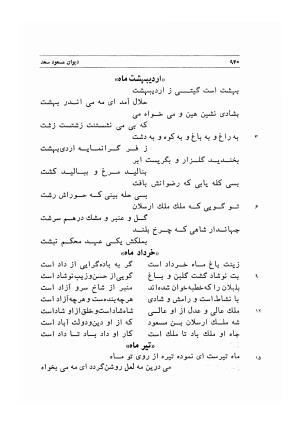 ۹۴۰
دیوان مسعود سعد
«اردیبهشت ماه»
بهشت است گیتی ز اردیبهشت
حلال آمد ای مه می اندر بهشت
بشادی نشین هین و می خواه می
که بی می نشستنت زشتست زشت
۳ به راغ و به باغ و به کوه و به دشت
ز فر گرانمایه اردی‌بهشت
بخندید گلزار و بگریست ابر
بنالید مرغ و ببالید کشت
بسی کله یابی که رضوانش بافت
بسی حله بینی که حوراش رشت
۶ تو گویی که ملک ملک ارسلان
گل و عنبر و مشک درهم سرشت
جهاندار شاهی که چرخ بلند
بملکش یکی عهد محکم نبشت
«خرداد ماه»
زینت باغ ماه خرداد است
گر به باده‌گرایی از داد است
۹ بت نوشاد گشت گلبن و باغ
گویی از حسن و زیب نوشاد است
بلبلان را که خطبه‌خوان شده‌اند
منبر از شاخ سرو آزاد است
با نشاط است و رامش و شادی
هرچه بنده‌ست و هرچه آزاد است
۱۲ ملک عالی و عدل از او عالی
شاه شاد است و خلق از او شاد است
شه ملک ارسلان بن مسعود
که از او دین و دولت آباد است
جاه او ملک باد تا ملک است
کار او داد باد تا داد است
«تیر ماه»
۱۵ ماه تیرست ای نموده تیره از روی تو ماه
می درین مه لعل روشن گردد ای مه می بخواه